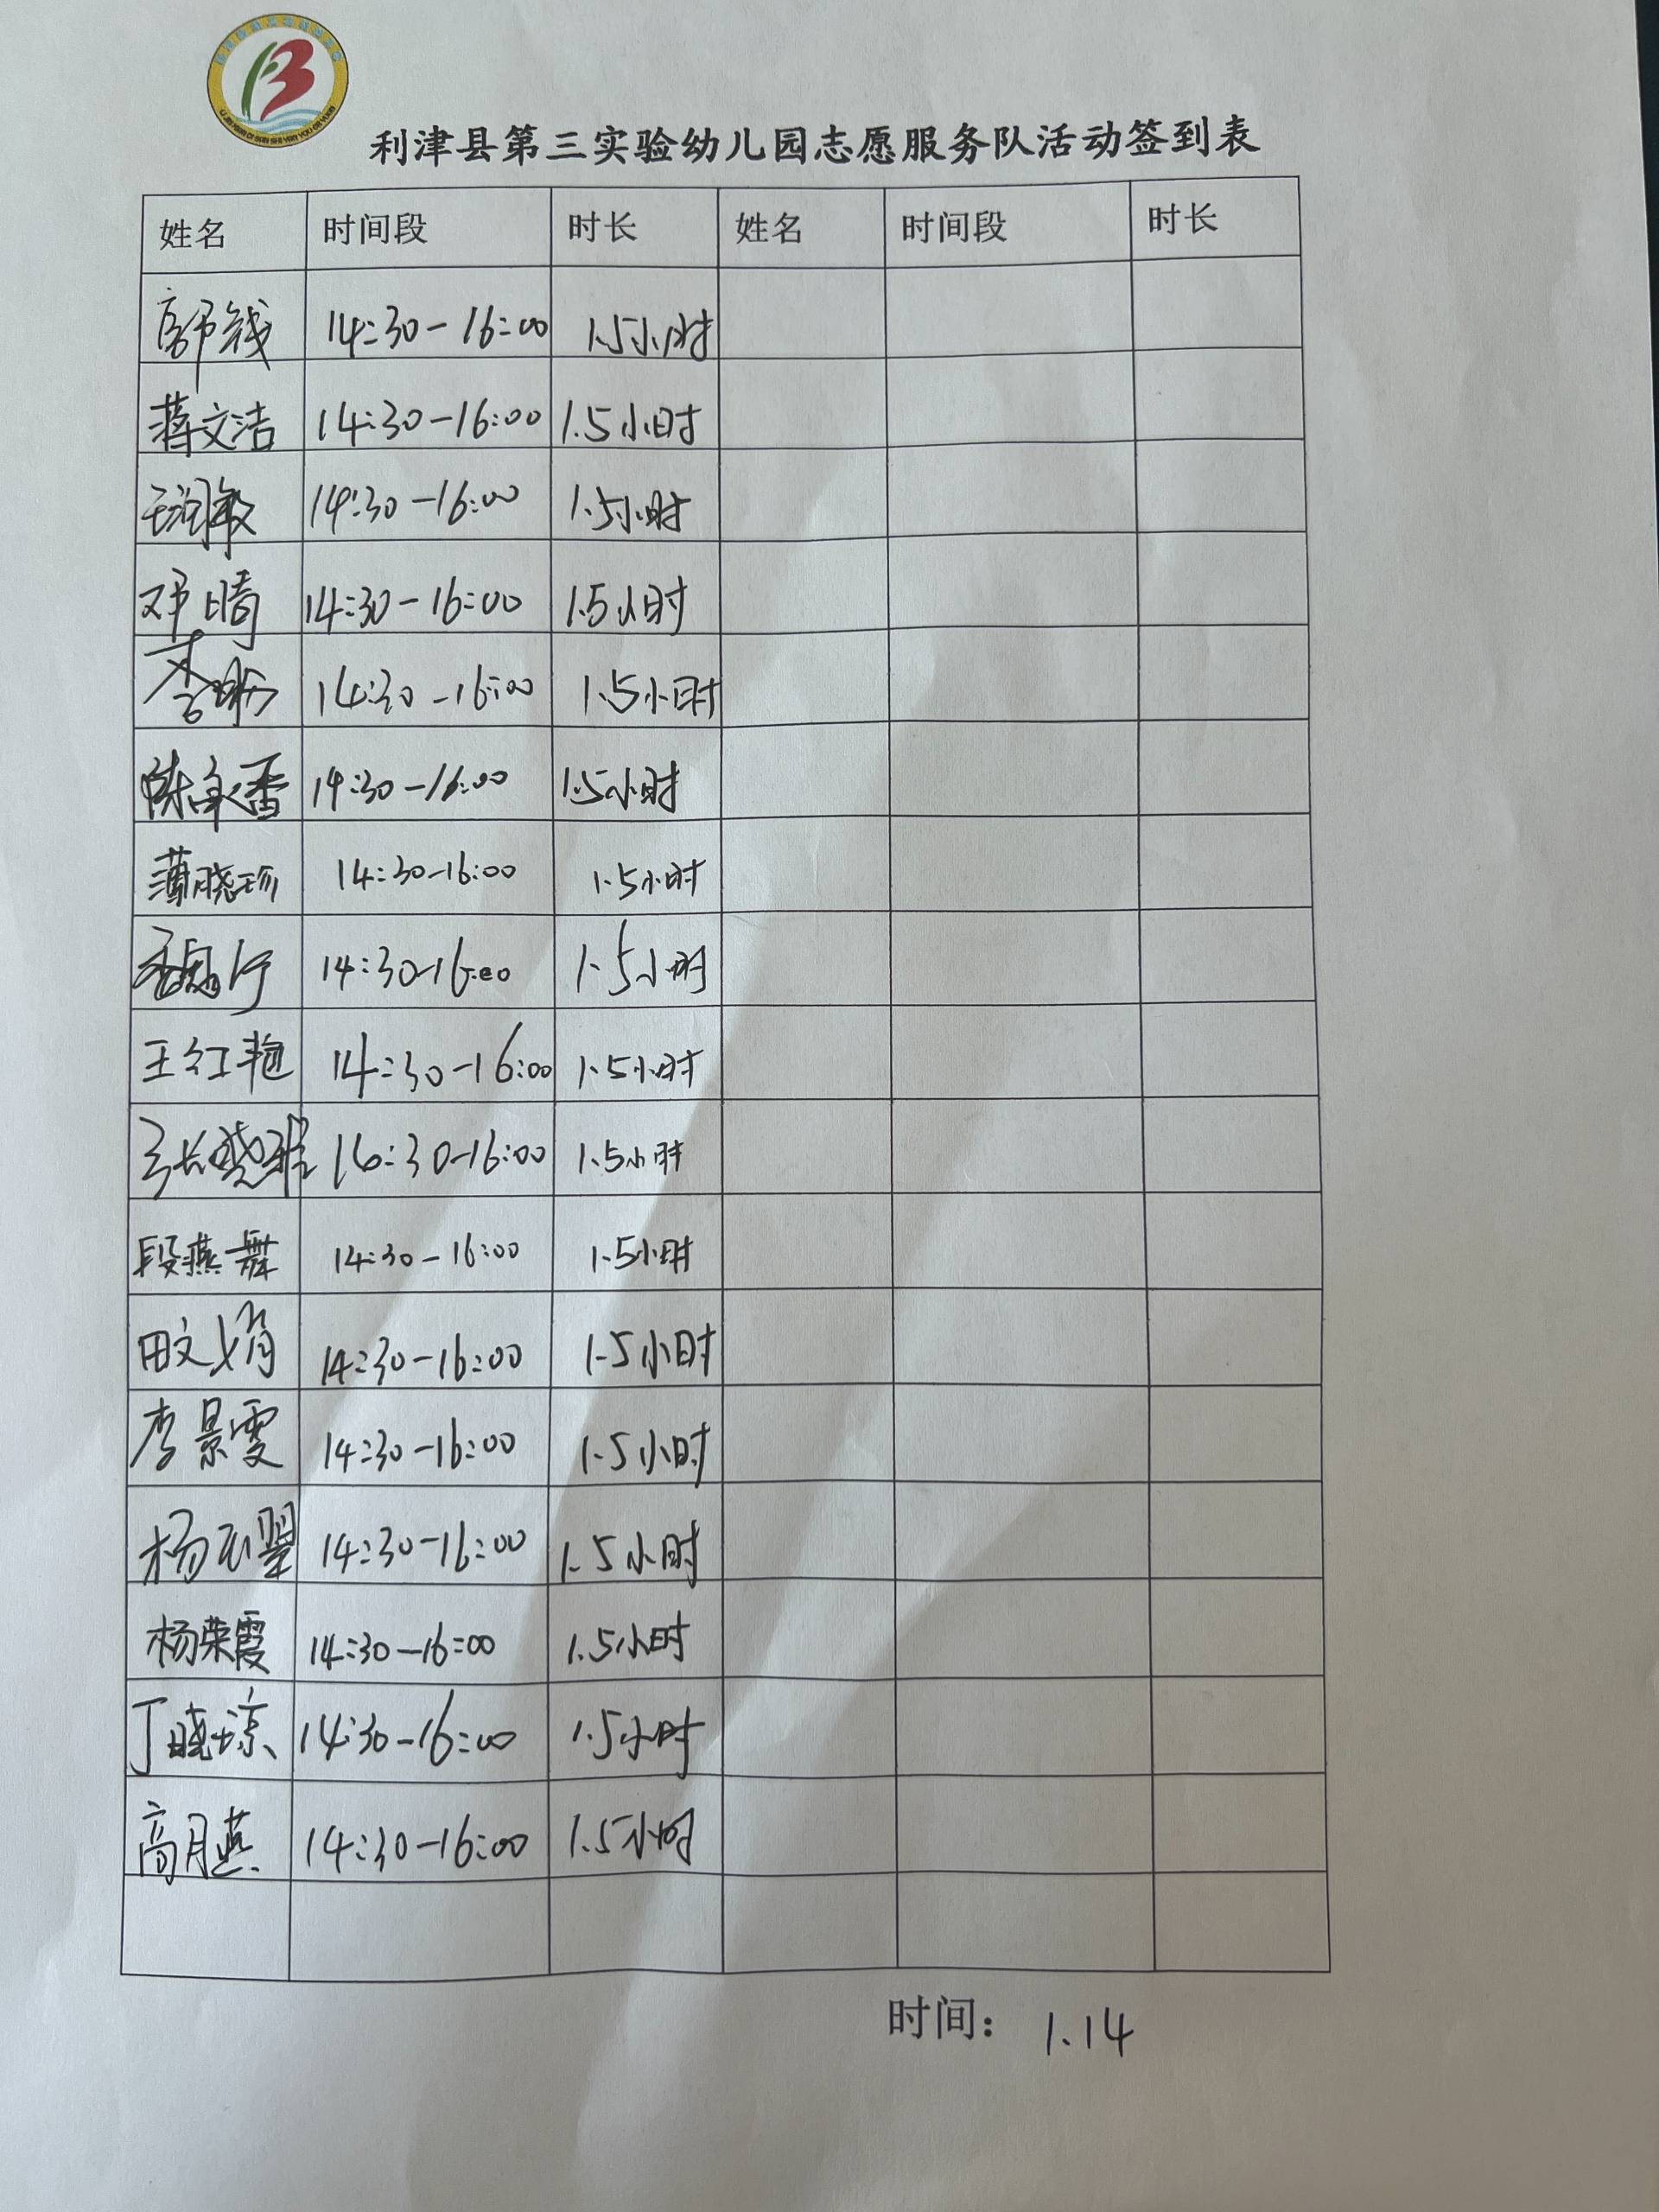 利津县第三实验幼儿园志愿服务队活动签到表
姓名 时间段 时长 姓名 时间段 时长
14:30-16:00 1.5小时
蒋文洁 14:30-16:00 1.5小时
14:30-16:00 1.5小时
邓晴 14:30-16:00 1.5小时
李 14:30-16:00 1.5小时
陈 香 14:30-16:00 1.5小时
薄晓珍 14:30-16:00 1.5小时
14:30-16:00 1.5小时
王红艳 14:30-16:00 1.5小时
张 雅 16:30-16:00 1.5小时
段燕舞 14:30-16:00 1.5小时
田文娟 14:30-16:00 1.5小时
李景雯 14:30-16:00 1.5小时
杨云翠 14:30-16:00 1.5小时
杨荣霞 14:30-16:00 1.5小时
丁晓琼 14:30-16:00 1.5小时
高月燕 14:30-16:00 1.5小时
时间： 1.14